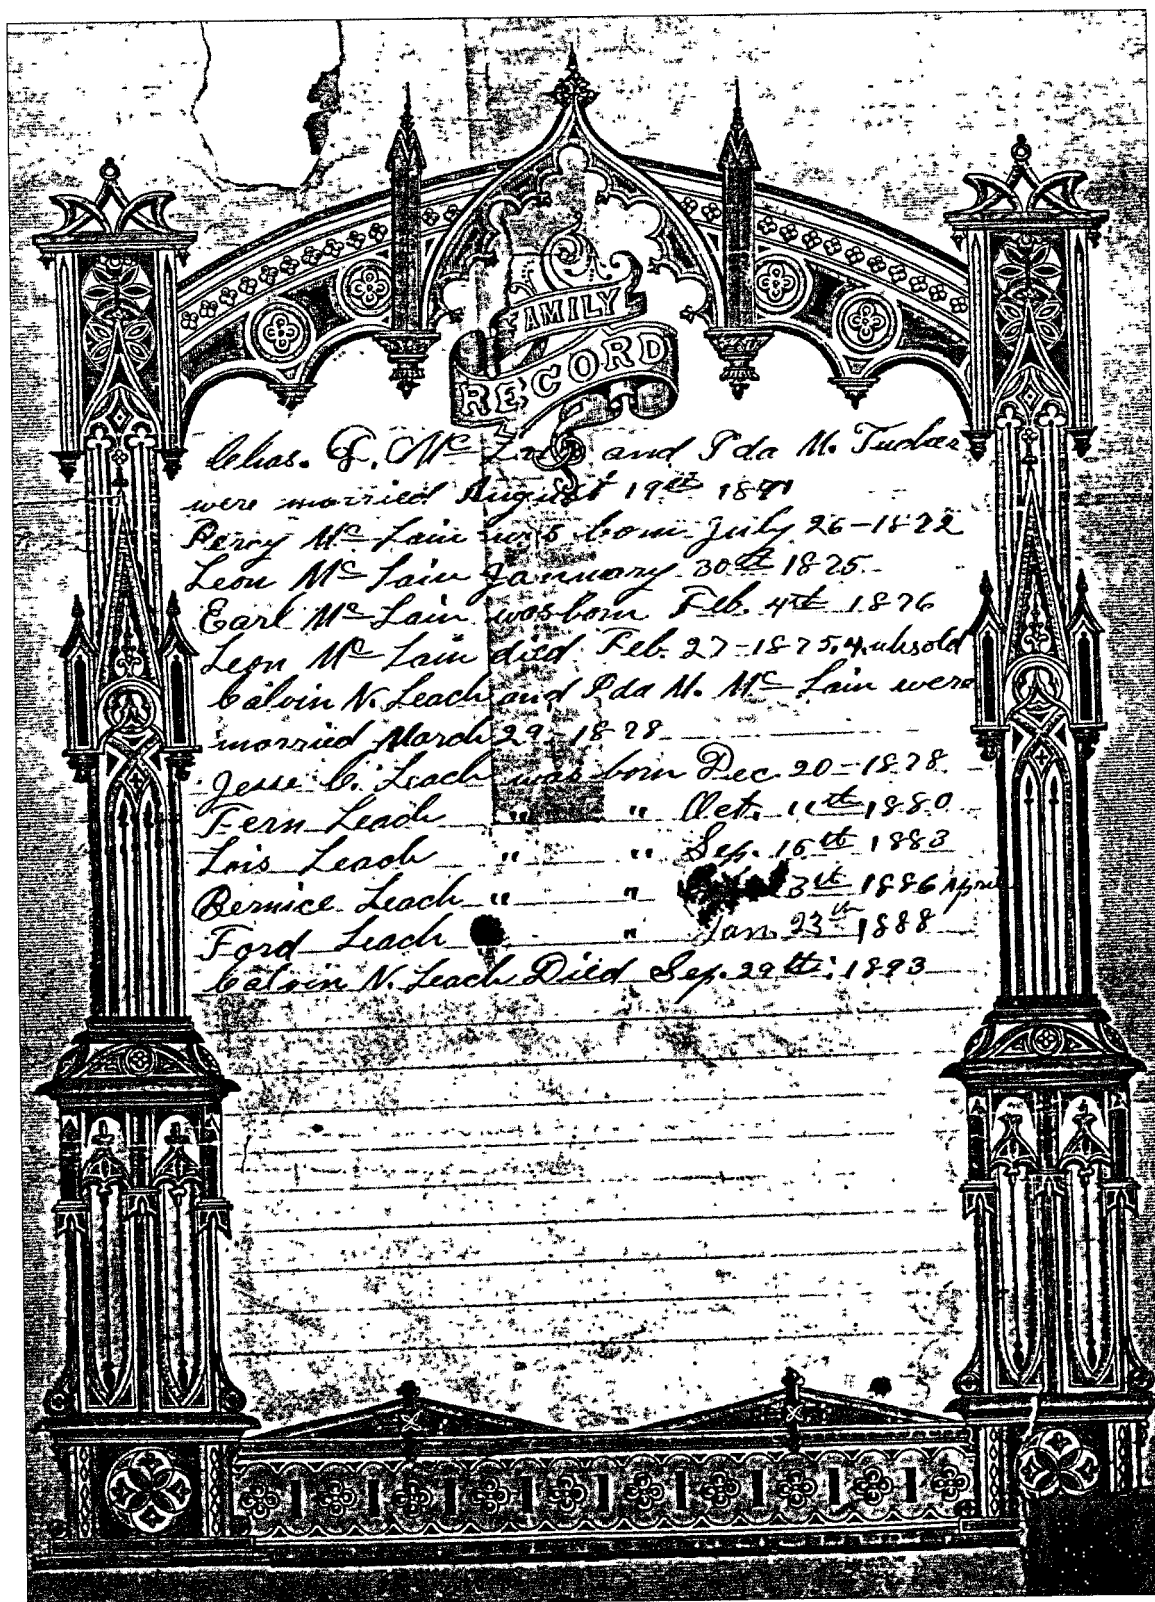 FAMILY
RECORD
Chas. G. Mc Lain and Ida M. Tucker
were married August 19th 1871
Percy Mc Lain was born July 26-1872
Leon Mc Lain January 30th 1875
Earl Mc Lain was born Feb. 4th 1876
Leon Mc Lain died Feb. 27-1875, 4 wks old
Calvin N. Leach and Ida M. Mc Lain were
married March 29-1878
Jesse C. Leach was born Dec. 20-1878
Fern Leach " " Oct. 11th 1880
Lois Leach " " Sep. 15th 1883
Bernice Leach " " 3th 1886 April
Ford Leach " Jan. 23th 1888
Calvin N. Leach Died Sep. 29th: 1893